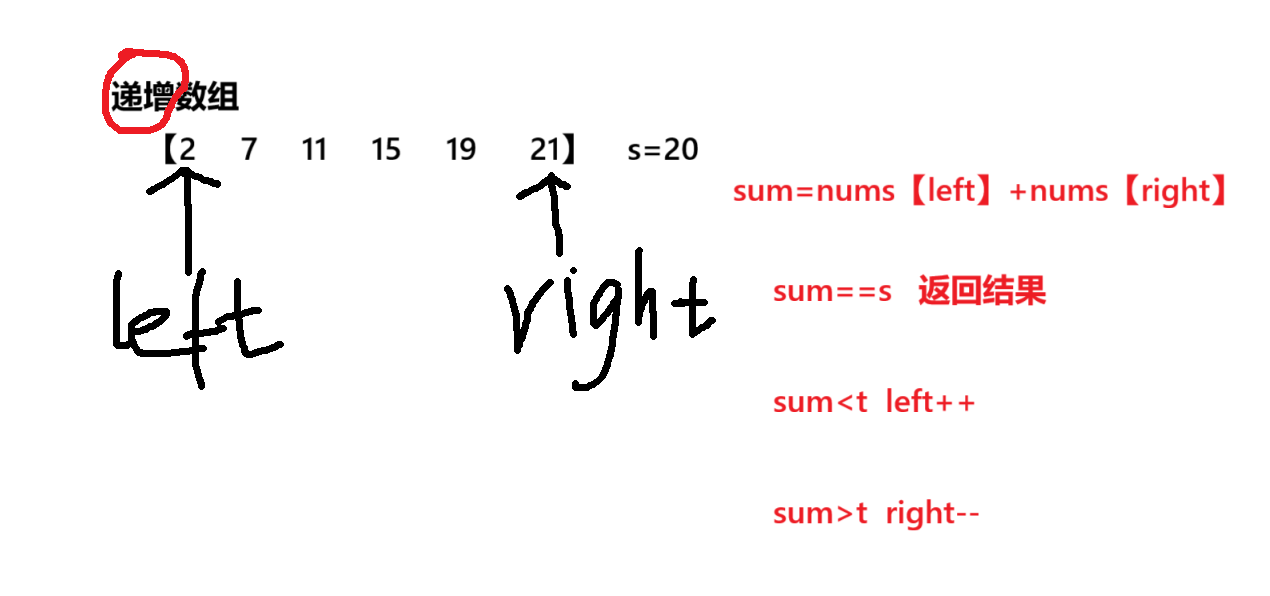 递增数组
【2 7 11 15 19 21】 s=20
sum=nums【left】+nums【right】
left
right
sum==s 返回结果
sum<t left++
sum>t right--